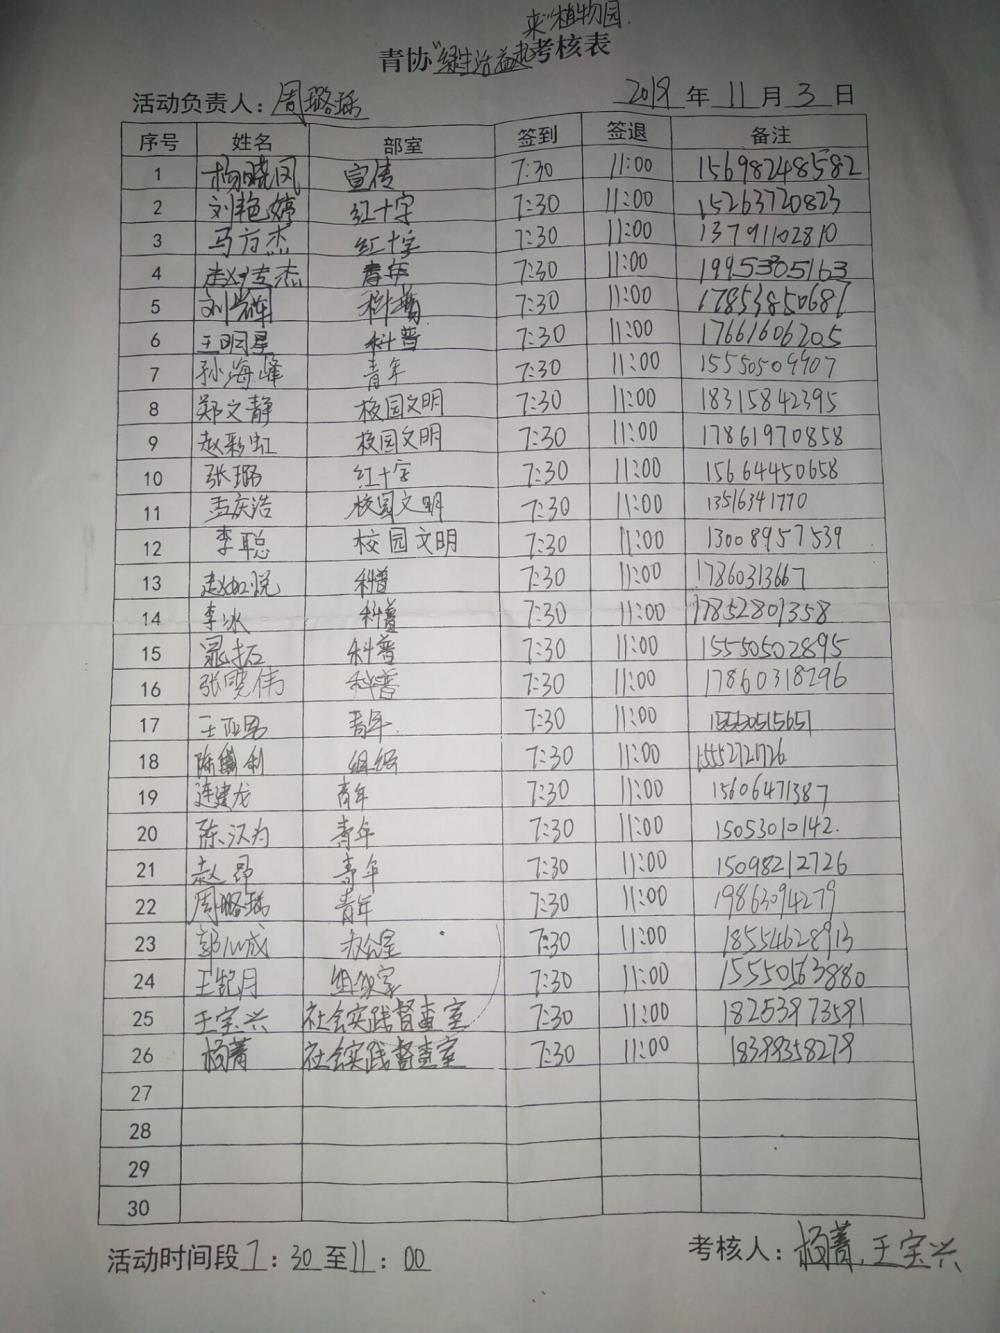 来"植物园.
青协"绿生活益起考核表
活动负责人：周璐瑶 2019 年 11 月 3 日
序号 姓名 部室 签到 签退 备注
1 杨晓凤 宣传 7:30 11:00 15698248582
2 刘艳婷 红十字 7:30 11:00 15263720823
3 马方杰 红十字 7:30 11:00 13791102810
4 赵俊杰 青年 7:30 11:00 19953305163
5 刘岩辉 科普 7:30 11:00 17853850687
6 王明星 科普 7:30 11:00 17661606205
7 孙海峰 青年 7:30 11:00 15550509907
8 郑文静 校园文明 7:30 11:00 18315842395
9 赵彩虹 校园文明 7:30 11:00 17861970858
10 张璐 红十字 7:30 11:00 15664450658
11 孟庆浩 校园文明 7:30 11:00 13516341770
12 李聪 校园文明 7:30 11:00 13008957539
13 赵如悦 科普 7:30 11:00 17860313667
14 李冰 科普 7:30 11:00 17852801358
15 晁拓 科普 7:30 11:00 15550502895
16 张晓伟 科普 7:30 11:00 17860318296
17 王亚男 青年 7:30 11:00 15550515651
18 陈 利 组织 7:30 11:00 15552721726
19 连建龙 青年 7:30 11:00 15606471387
20 陈汉为 青年 7:30 11:00 15053010142.
21 赵昂 青年 7:30 11:00 15098212726
22 周璐瑶 青年 7:30 11:00 19863094279
23 郭心成 办公室 7:30 11:00 18554628913
24 王 月 组织室 7:30 11:00 15550563880
25 王宝兴 社会实践督查室 7:30 11:00 18253973591
26 杨菁 社会实践督查室 7:30 11:00 18399358279
27
28
29
30
活动时间段 7：30 至 11：00 考核人：杨菁、王宝兴